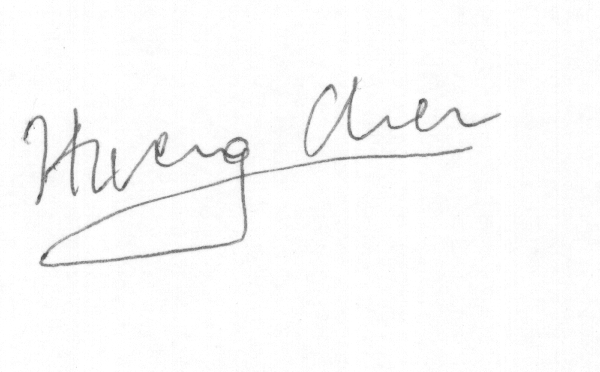 Hweng Chen